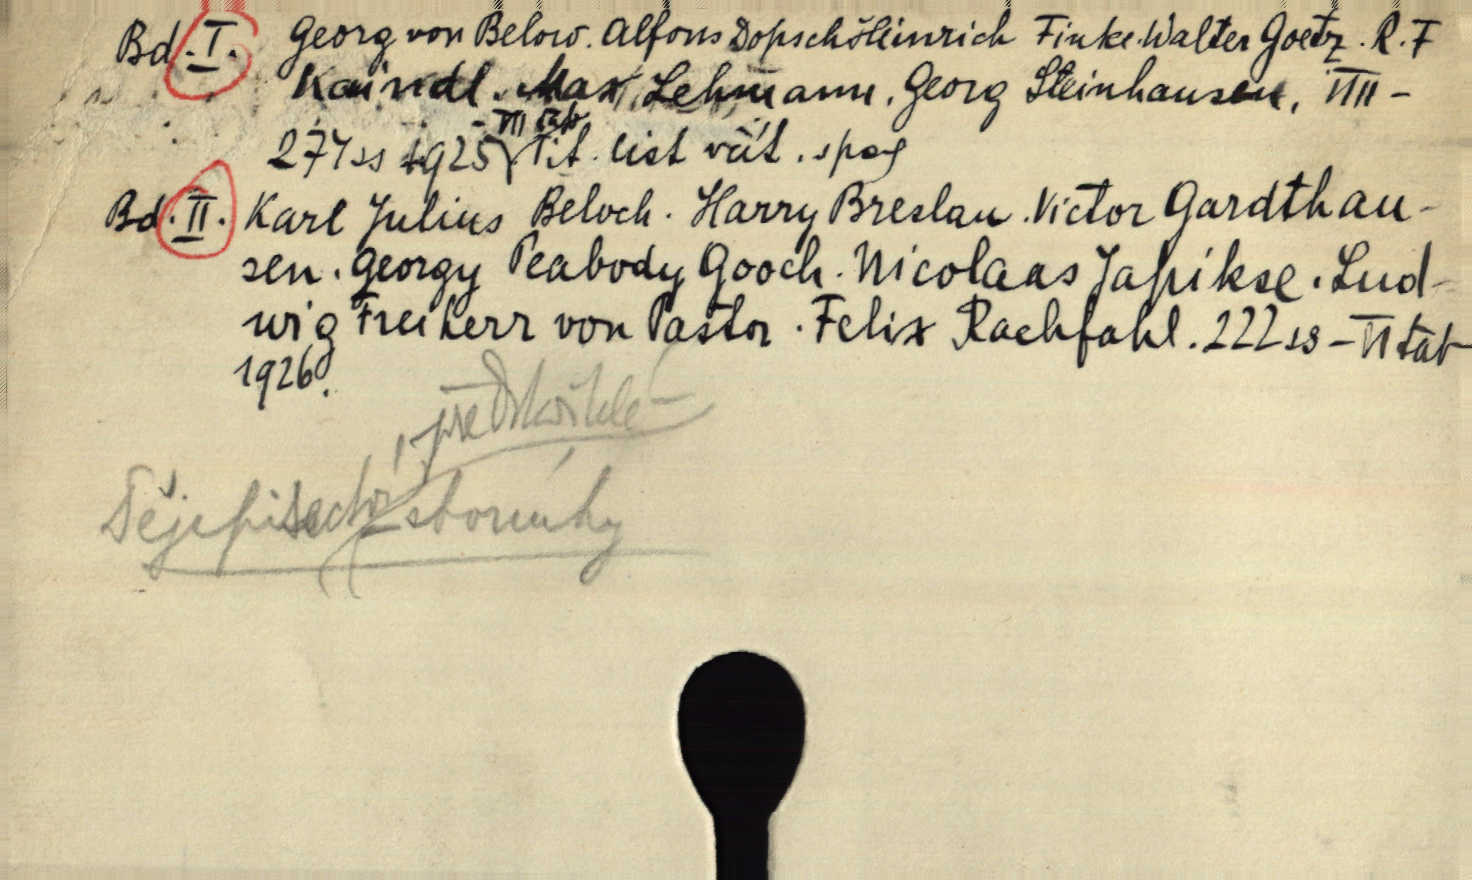 Bd. I. Georg von Below. Alfons Dopsch. Heinrich Finke. Walter Goetz. R. F
Kaindl. Max Lehmann. Georg Steinhausen. VIII -
- VII tab
274 ss 1925 Tit. list vaz. spag
Bd. II. Karl Julius Beloch. Harry Breslau. Victor Gardthau-
sen. Georgy Peabody Gooch. Nicolaas Japikse. Lud-
wig Freiherr von Pastor. Felix Rachfahl. 222 ss - VI tab
1926.
Dějepisectví sborníky